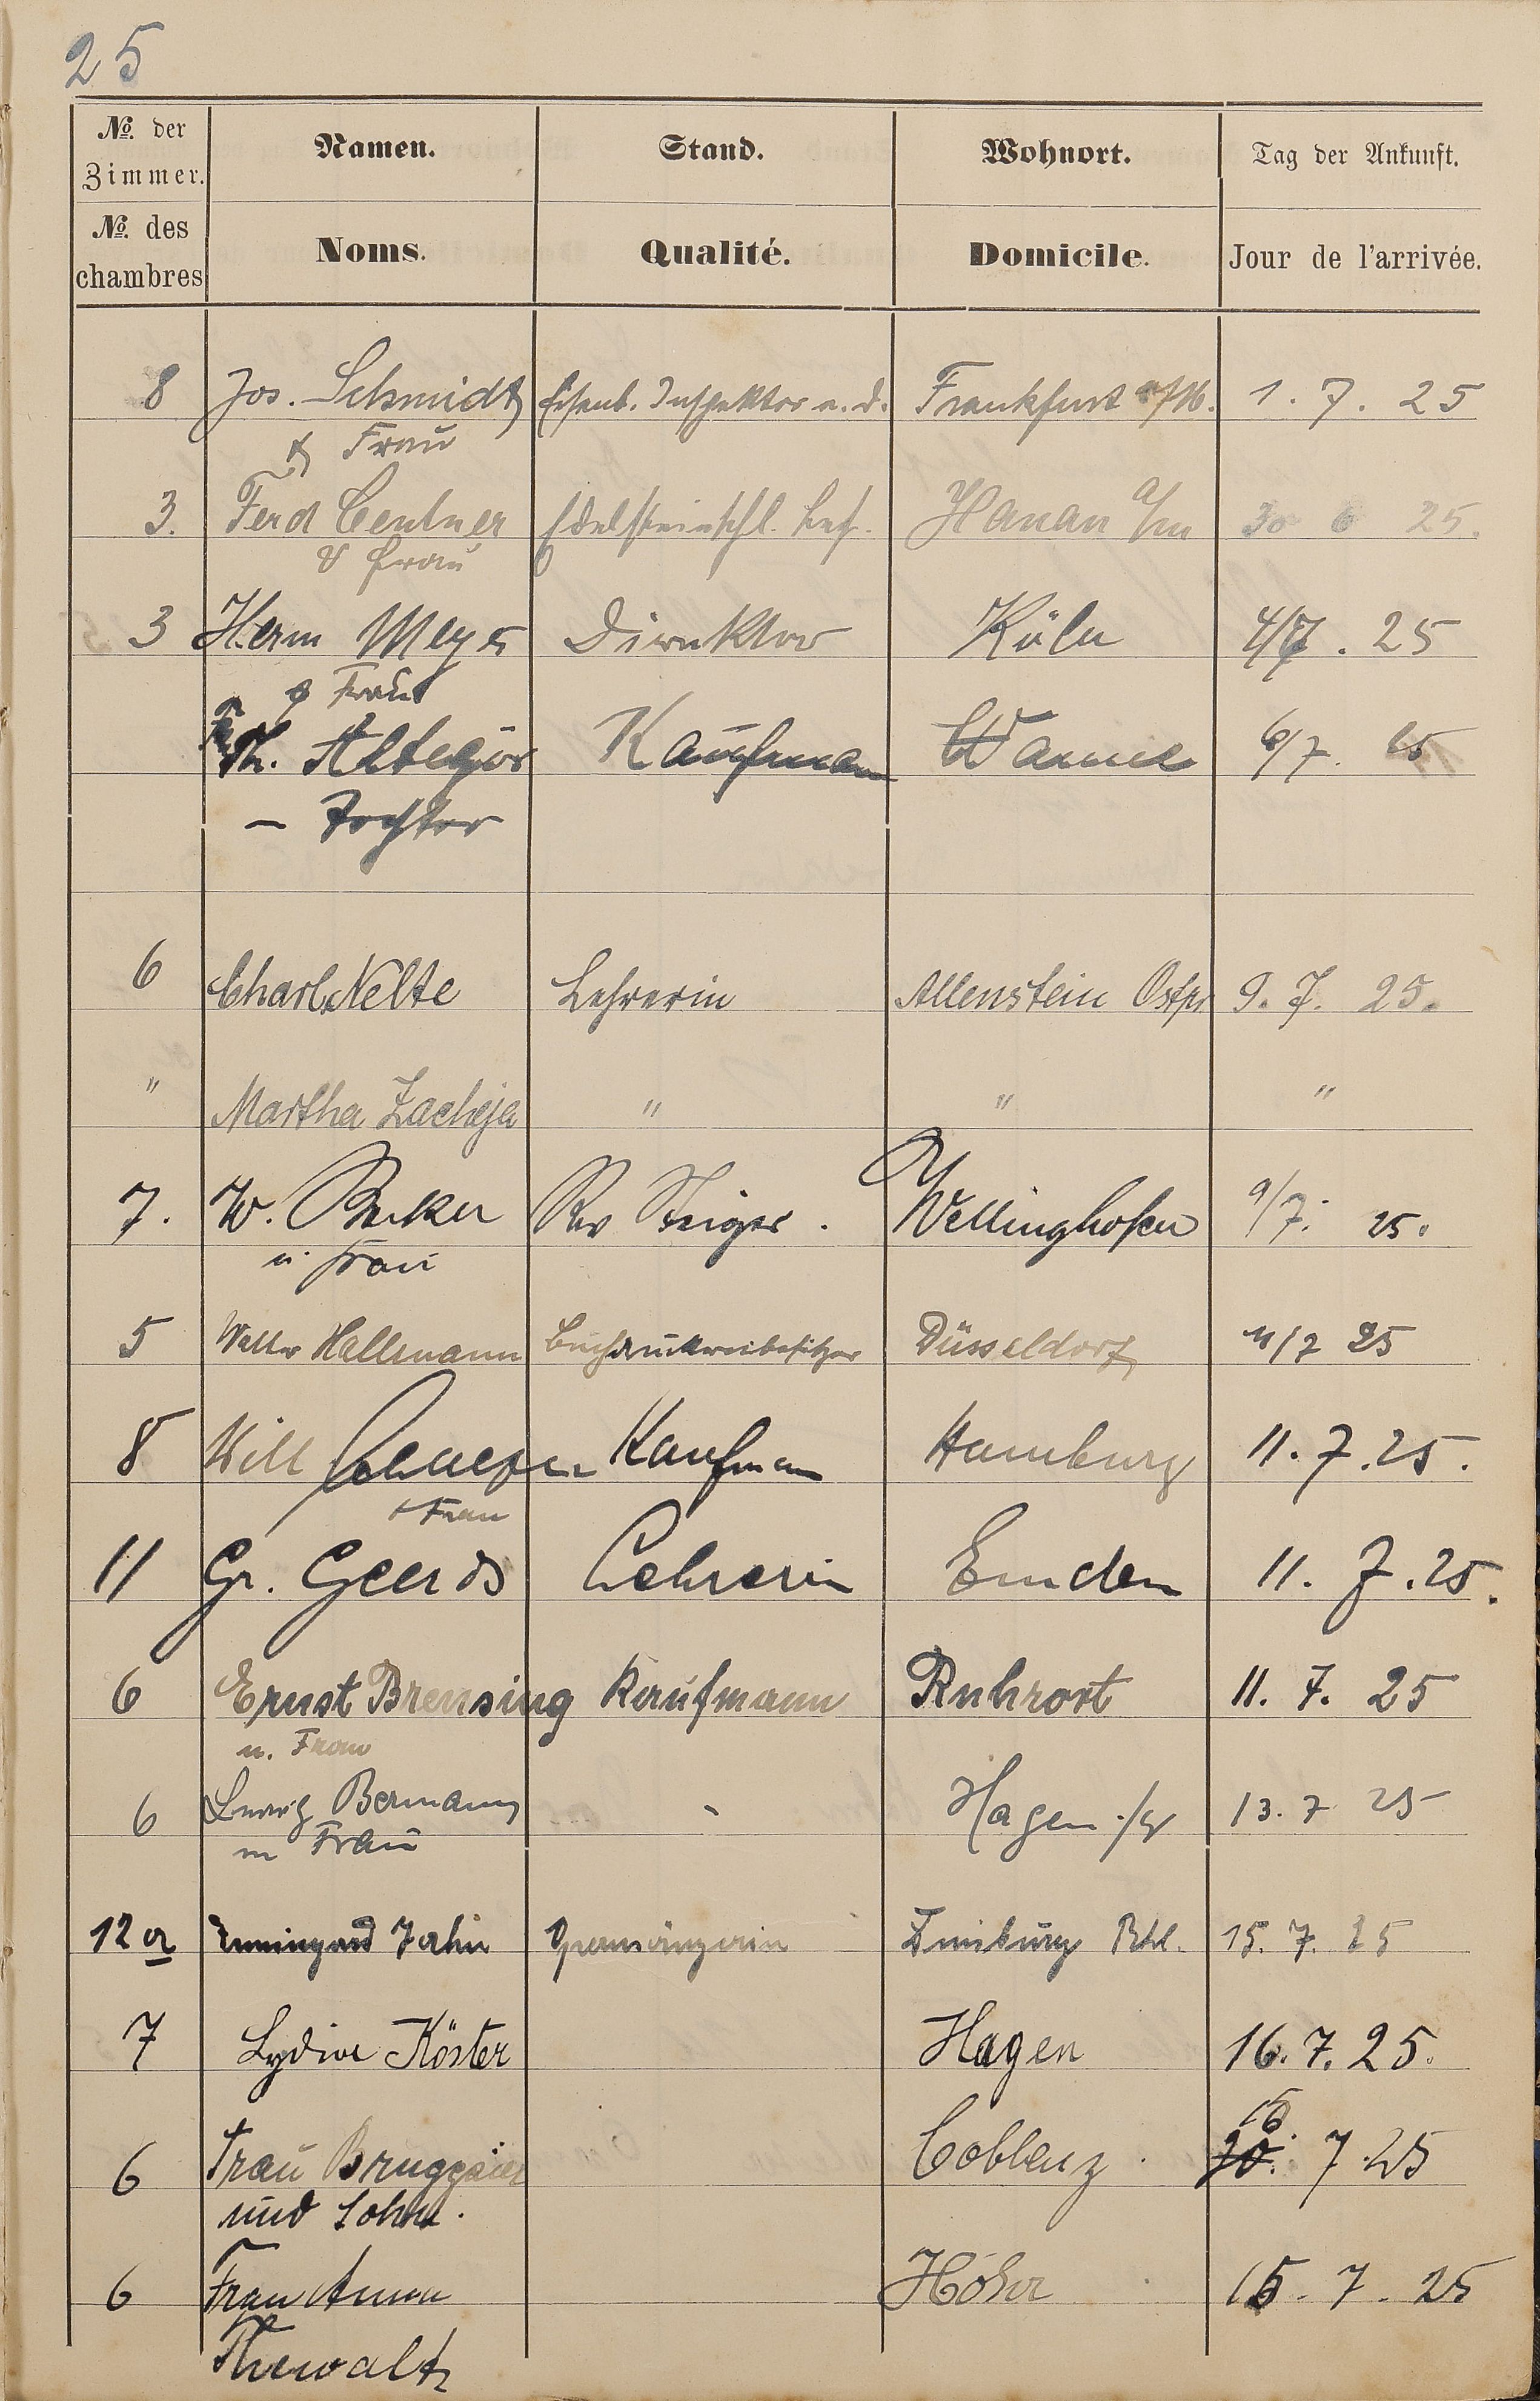 25
No. der Zimmer. Namen. Stand. Wohnort. Tag der Ankunft.
No. des chambres Noms. Qualité. Domicile. Jour de l'arrivée.
8 Jos. Schmidt Eisenb. Inspektor a. d. Frankfurt a/M. 1. 7. 25
& Frau
3. Ferd Centner Edelsteinschl. Bes. Hanau a/m 30 6 25.
& Frau
3 Herm Meyer Direktor Köln 4/7. 25
& Frau
Th. Altegör Kaufmann Wanne 6/7. 25
– Tochter
6 Charl. Nelte Lehrerin Allenstein Ostpr 9. 7. 25.
" Martha Zacheja " " "
7. W. Becker Rev Steiger. Wellinghofen 9/7. 25.
u. Frau
5 Walter Hallmann Buchdruckereibesitzer Düsseldorf 11/7 25
8 Will Kaufmann Hamburg 11. 7. 25.
+ Frau
11 Gr. Geerds Lehrerin Emden 11. 7. 25.
6 Ernst Brensing Kaufmann Ruhrort 11. 7. 25
u. Frau
6 Ludwig Bermann - Hagen i/W 13. 7 25
m Frau
12a Irmingard Jahn Opernsängerin Duisburg Rhl. 15. 7. 25
7 Lydia Köster Hagen 16. 7. 25.
16.
6 Frau Bruggaier Coblenz. 20. 7. 25
und Sohn.
6 Frau Anna Höhr 15. 7. 25
Thewalt